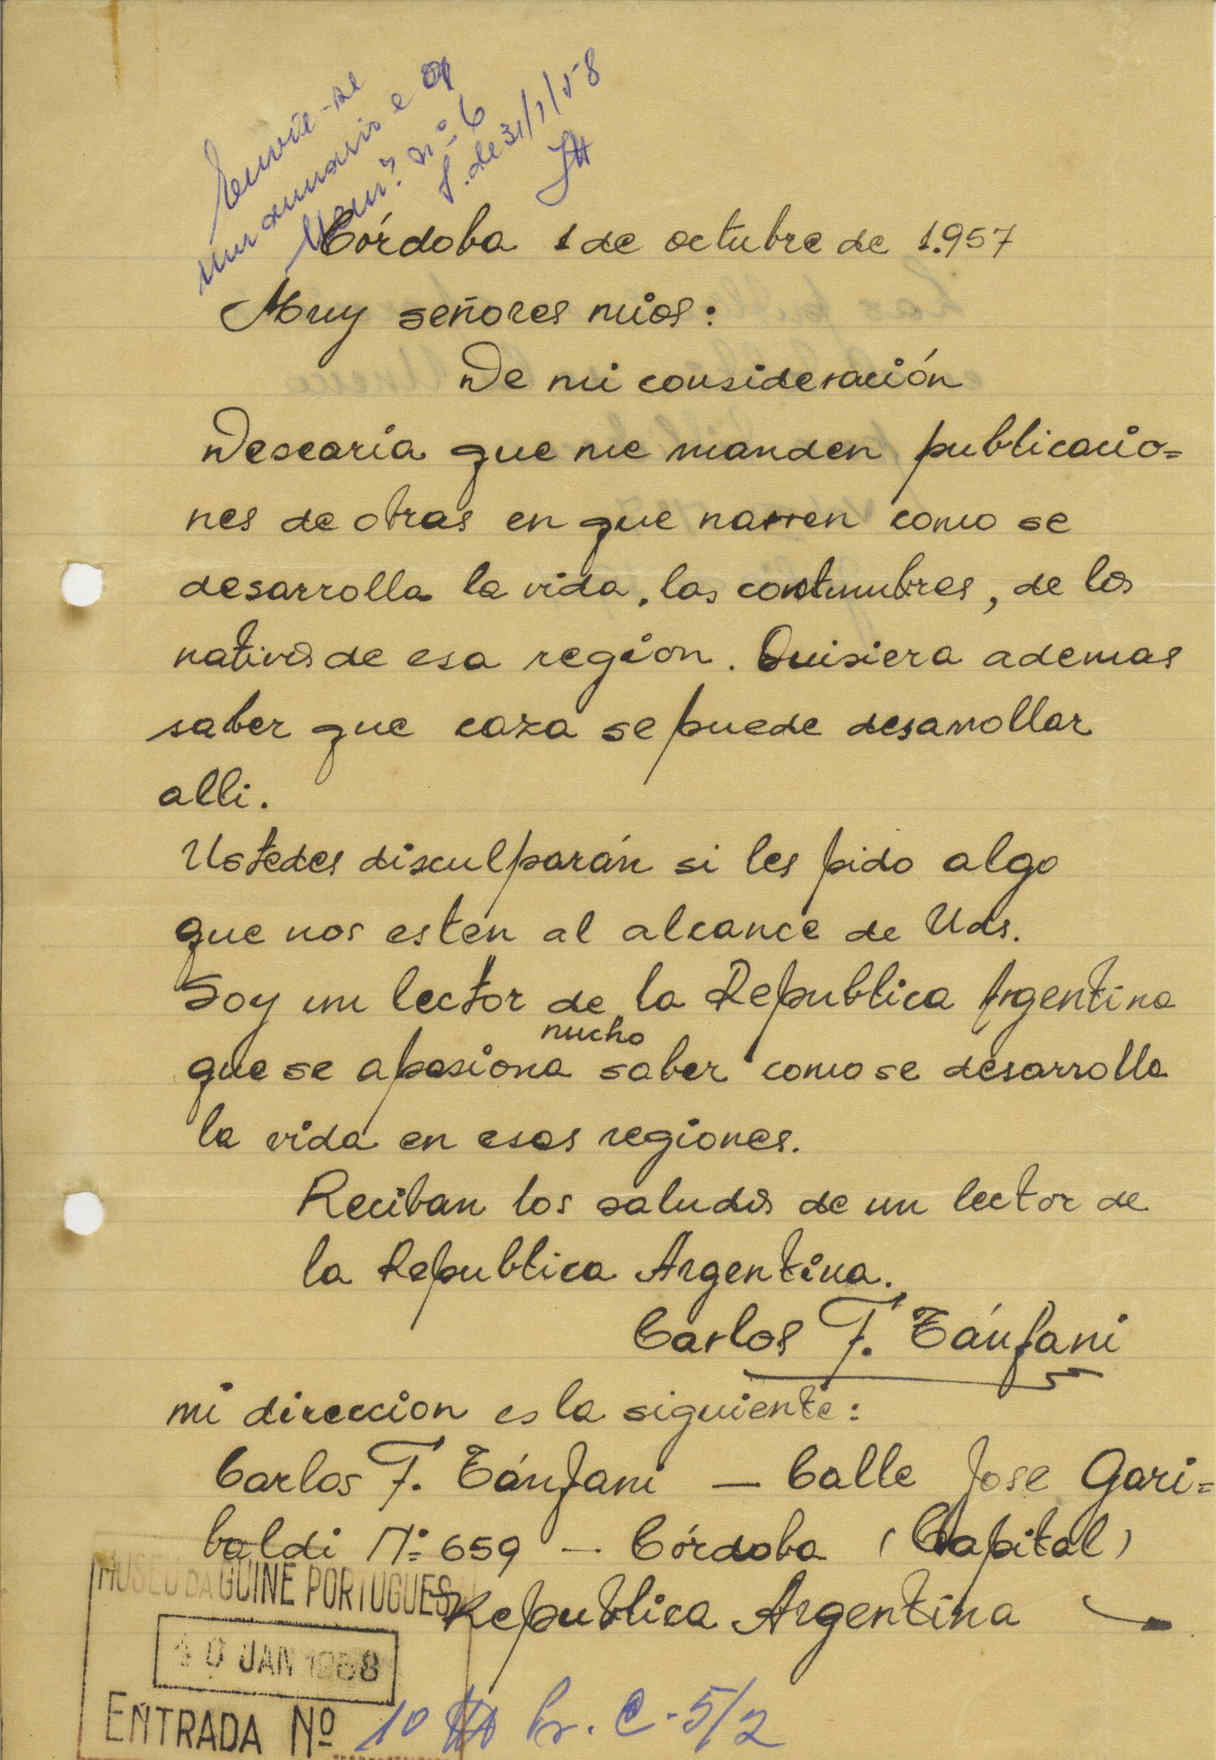 Envie-se
um anuario e
nº 6
de 31/1/58
Córdoba 1 de octubre de 1.957
Muy señores mios:
De mi consideración
Desearia que me manden publicacio=
nes de obras en que narren como se
desarrolla la vida, las costumbres, de los
nativos de esa region. Quisiera ademas
saber que caza se puede desarrollar
alli.
Ustedes disculparán si les pido algo
que nos esten al alcance de Uds.
Soy un lector de la Republica Argentina
que se apasiona mucho saber como se desarrolla
la vida en esas regiones.
Reciban los saludos de un lector de
la Republica Argentina.
Carlos F. Tánfani
mi direccion es la siguiente:
Carlos F. Tánfani — Calle Jose Gari=
baldi Nº 659 — Córdoba (Capital)
Republica Argentina
MUSEU DA GUINE PORTUGUESA
JAN 1958
ENTRADA Nº 10 Pr. C-5/2